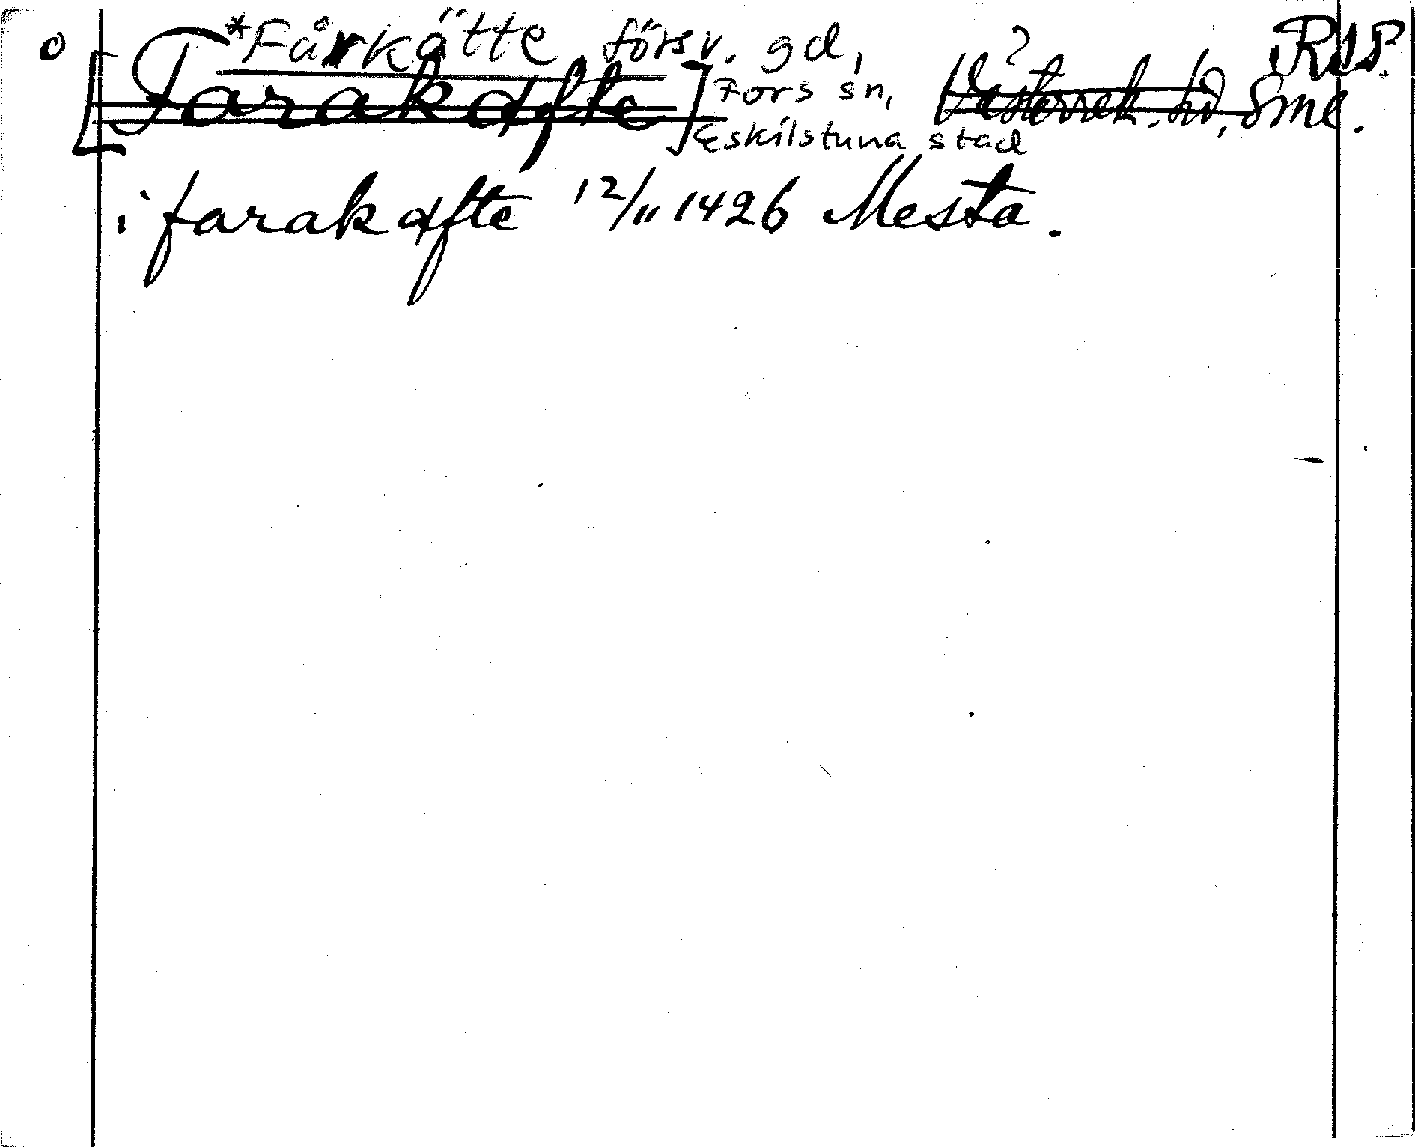 o *Fårkätte försv. gd, ? R18.
[Farakæfte] Fors sn, Västerrek. hd, Sme.
Eskilstuna stad
i farakæfte 12/11 1426 Mesta.